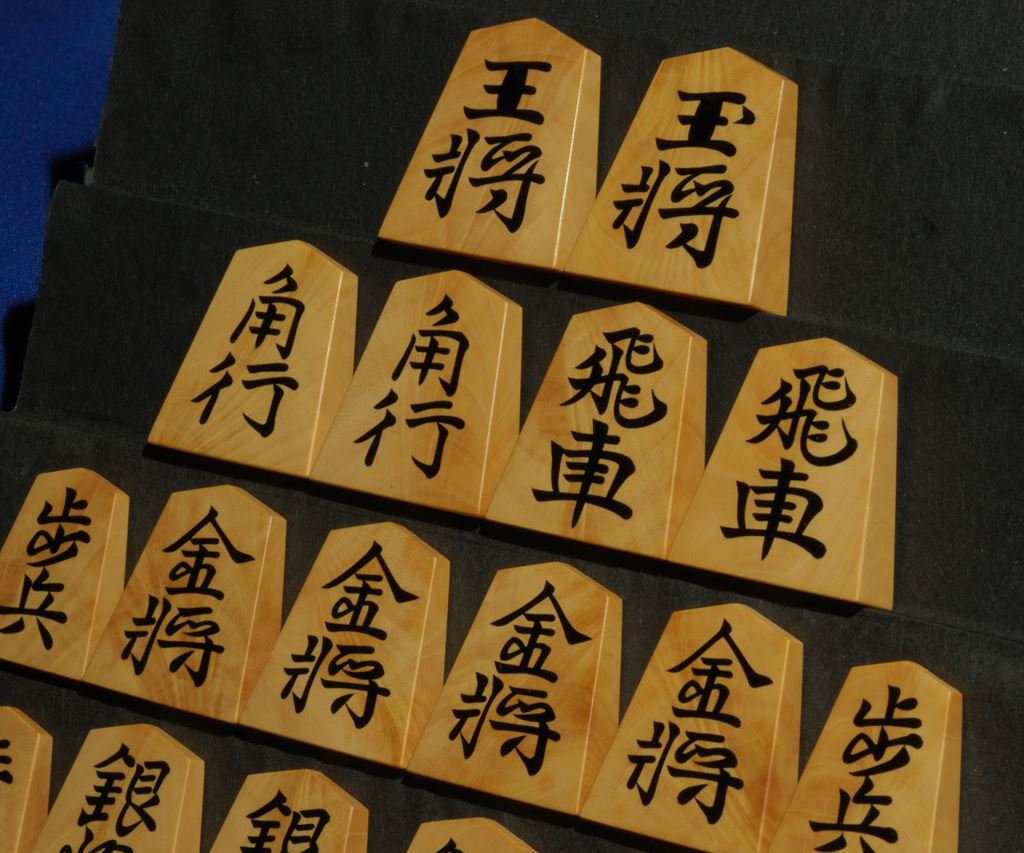 王將
玉將
角行
角行
飛車
飛車
歩兵
金將
金將
金將
金將
歩兵
銀
銀